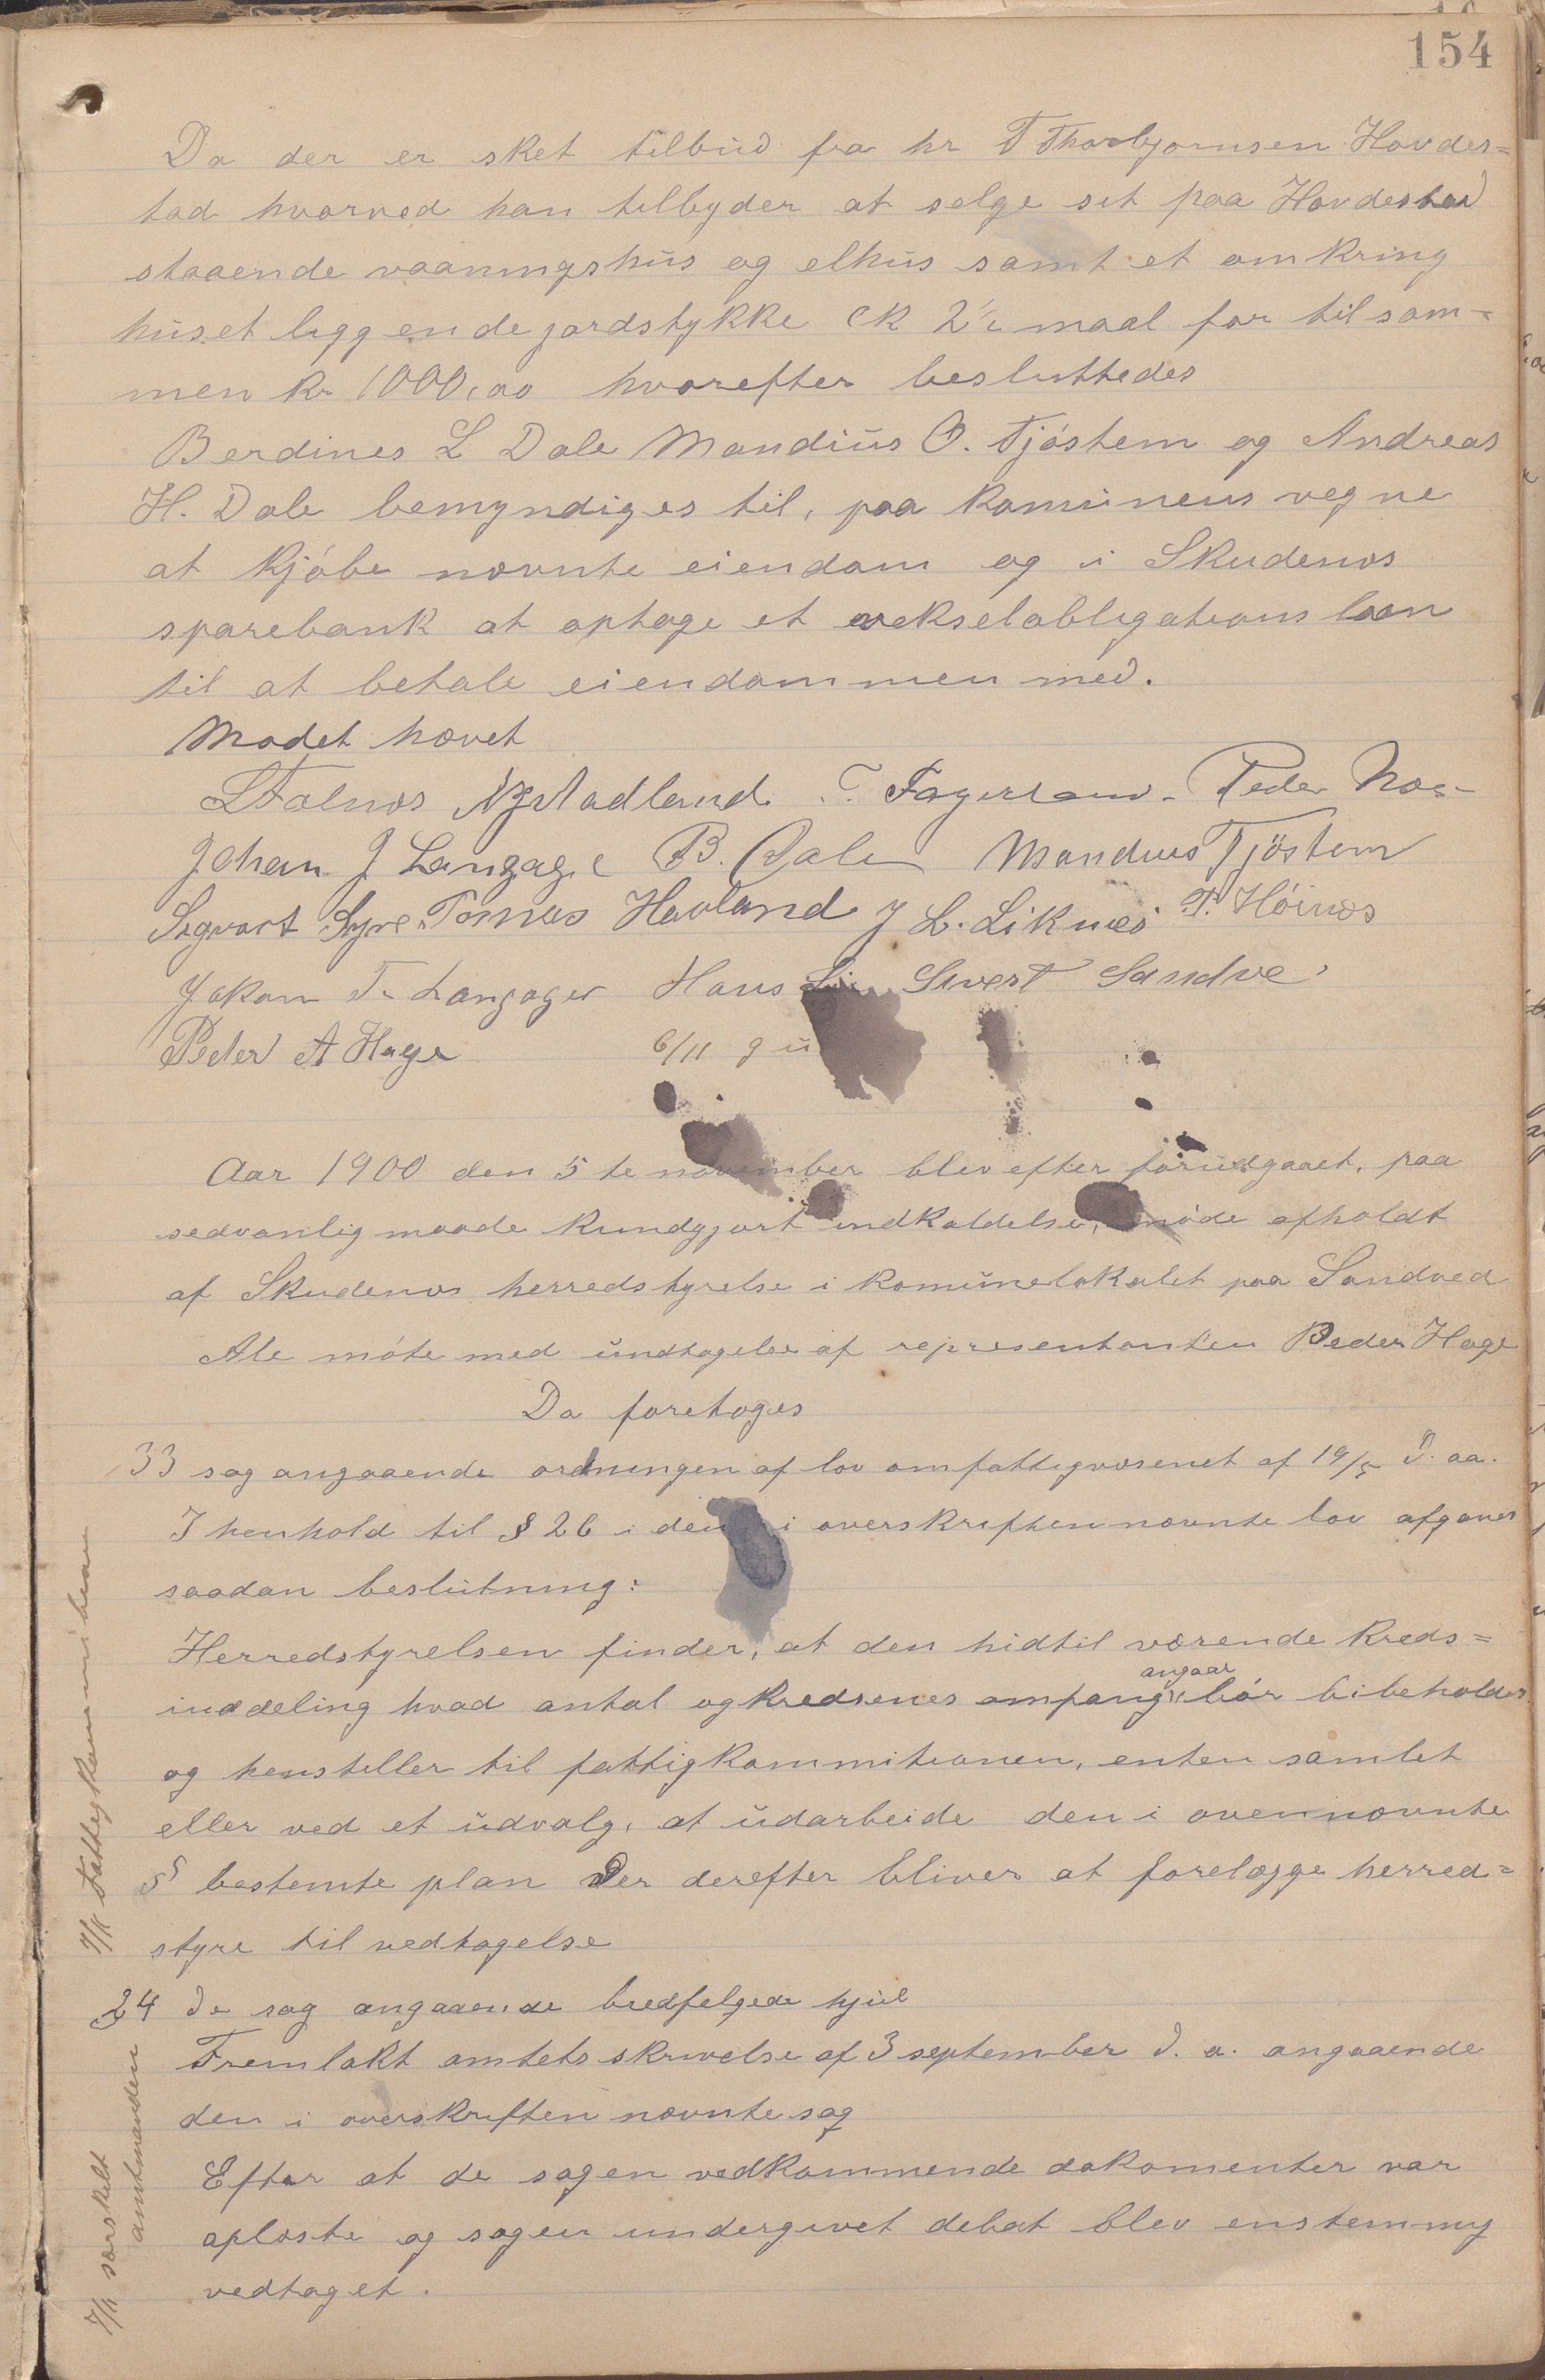 154
Da der er sket tilbud fra hr T Thorbjørnsen Hovdes=
tad hvorved han tilbyder at selge sit paa Hovdestad
staaende vaaningshus og elhus samt et omkring
huset liggende jordstykke ck 2½ maal for tilsam-
men kr 1000,00 hvorefter besluttedes
Berdines L Dale Mandius O. Tjøstem og Andreas
H. Dale bemyndiges til, paa komunens vegne
at kjøbe nævnte eiendom og i Skudenes
sparebank at optage et vekselobligations laan
til at betale eiendommen med.
Mødet hævet
L Falnes Stadland T. Fagerland. Peder Næs-
Johan J Langage B. Dale Mandius Tjöstem
Sigvart Syre Tomas Hovland J L. Liknes P. Høines
Jakon T. Langager Hans Sivert Sandve
Peder A Hage 6/11 g u
Aar 1900 den 5te november blev efter forudgaaet, paa
sedvanlig maade kundgjort indkaldelse, møde afholdt
af Skudenes herredstyrelse i komunelokalet paa Sandved
Ale møte med undtagelse af representanten Peder Hage
Da foretoges
33 sag angaaende ordningen af lov omfattigvæsenet af 19/5 d. aa.
I henhold til § 26 i den i overskriften nævnte lov afgaves
saadan beslutning:
Herredstyrelsen finder, at den hidtil værende kreds=
inddeling hvad antal og kredsenes omfang angaar bør bibeholdes
og henstiller til fattigkommitionen, enten samlet
eller ved et udvalg, at udarbeide den i ovennævnte
§ bestemte plan der derefter bliver at forelægge herred=
styre til vedtagelse
34 de sag angaaende bredfelgede hjul
Fremlakt amtets skrivelse af 3 september d. a. angaaende
den i overskriften nævnte sag
Efter at de sagen vedkommende dokomenter var
oplæste og sagen undergivet debat blev enstemmig
vedtaget.
7/11 Fattigkommi
7/11 særskilt
amtmanden